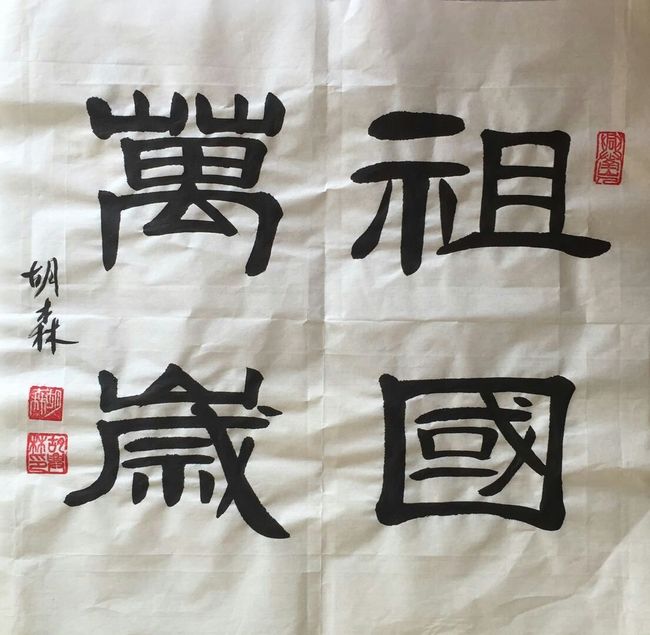 祖國
萬歲
胡森